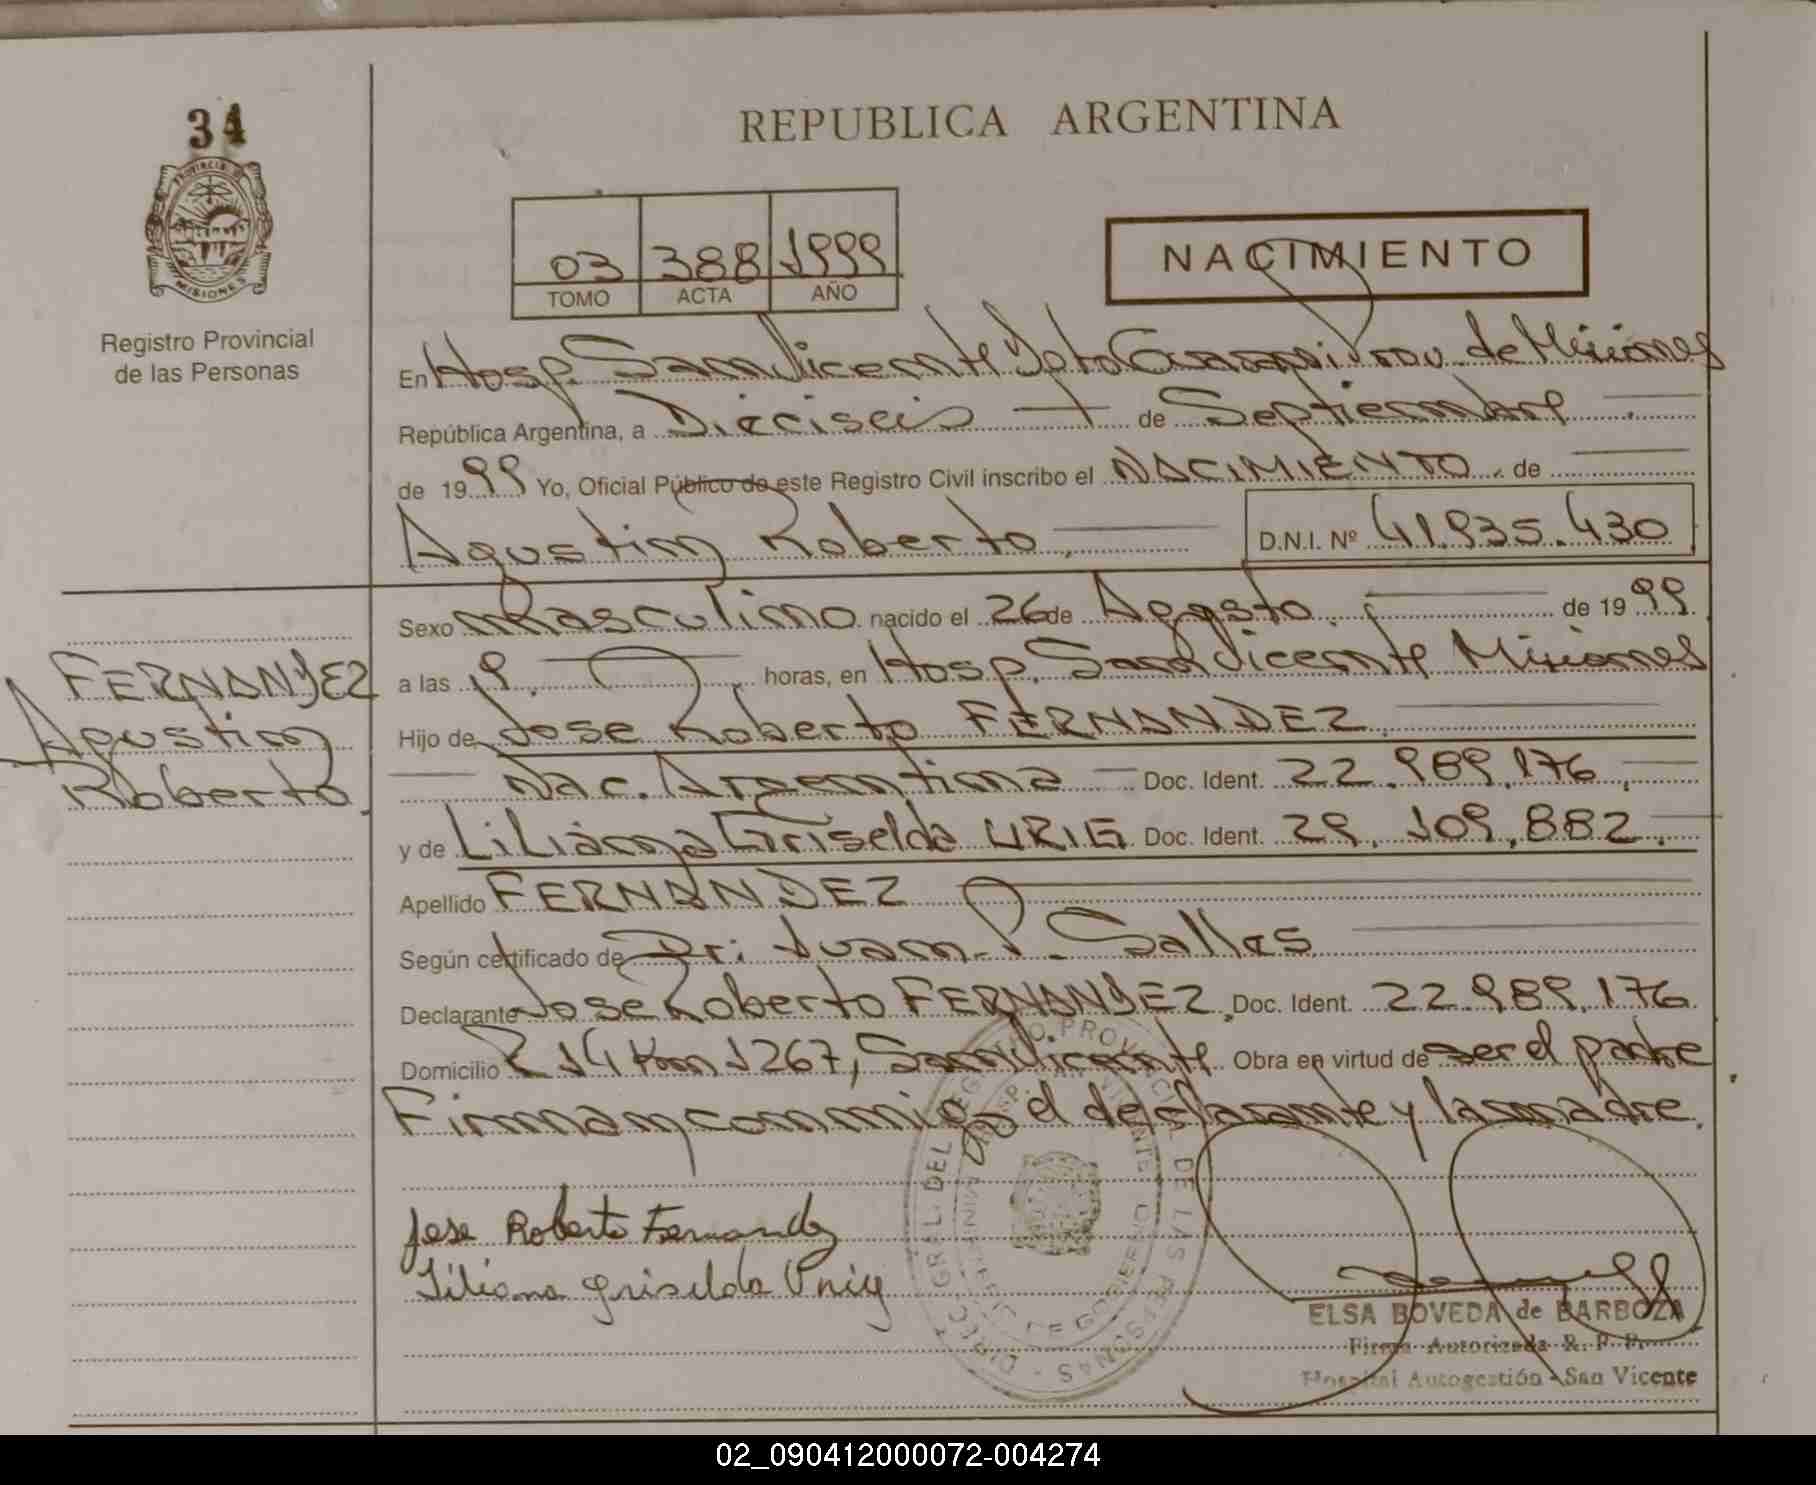 34
PROVINCIA DE
MISIONES
Registro Provincial
de las Personas
REPUBLICA ARGENTINA
03 388 1999
TOMO ACTA AÑO
NACIMIENTO
En Hosp. San Vicente Dpto Guarani Prov. de Misiones
República Argentina, a Dieciseis de Septiembre
de 1999 Yo, Oficial Público de este Registro Civil inscribo el NACIMIENTO de
Agustin Roberto
D.N.I. Nº 41.935.430
Sexo Masculino nacido el 26 de Agosto de 1999
a las 19 horas, en Hosp. San Vicente Misiones
Hijo de Jose Roberto FERNANDEZ
Nac. Argentina Doc. Ident. 22.989.176
y de Liliana Griselda URIG Doc. Ident. 29.109.882
Apellido FERNANDEZ
Según certificado de Dr: Juan Salles
Declarante Jose Roberto FERNANDEZ, Doc. Ident. 22.989.176
Domicilio R 14 Km 1267, San Vicente Obra en virtud de ser el padre
Firman conmigo el declarante y la madre.
FERNANDEZ
Agustin
Roberto
Jose Roberto Fernandez
Liliana Griselda Urig
DIREC. GRAL. DEL REGISTRO PROVINCIAL DE LAS PERSONAS
ELSA BOVEDA de BARBOZA
Firma Autorizada R. P. P.
Hospital Autogestión - San Vicente
02_090412000072-004274